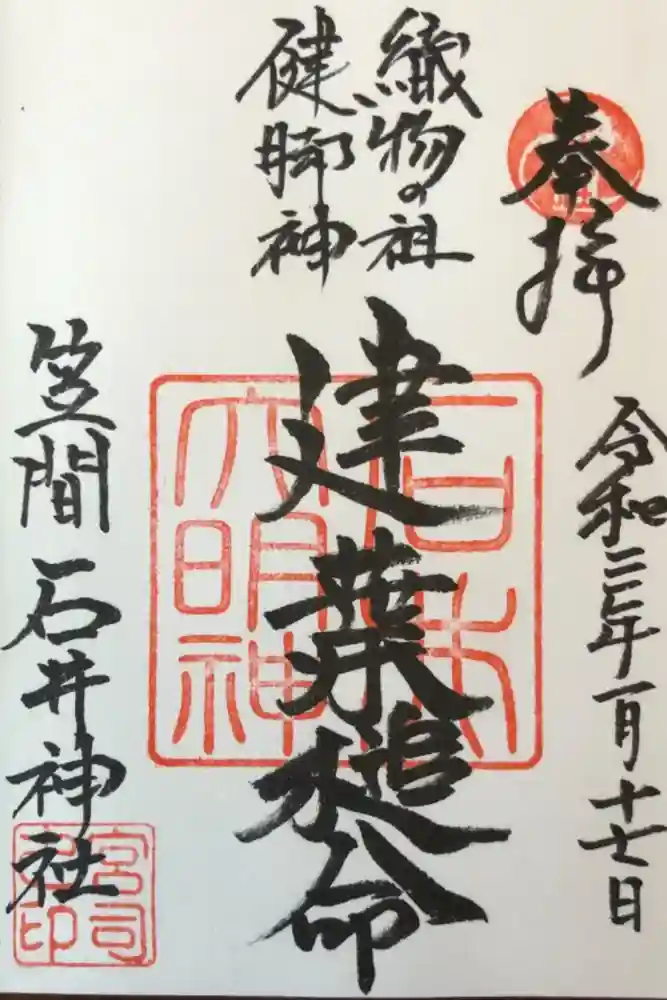 奉拝
令和三年一月十七日
織物の祖
健脚神
建葉槌命
笠間 石井神社
大明神
宮司之印